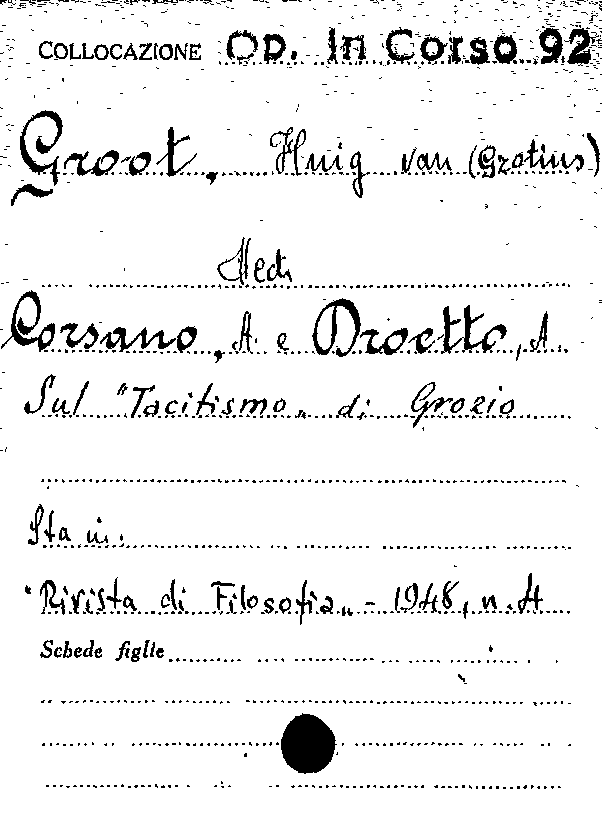 COLLOCAZIONE Op. In Corso 92
Groot, Huig van (Grotius)
Vedi
Corsano, A. e Droetto, A.
Sul "Tacitismo„ di Grozio
Sta in:
"Rivista di Filosofia„ - 1948, n. 4
Schede figlie